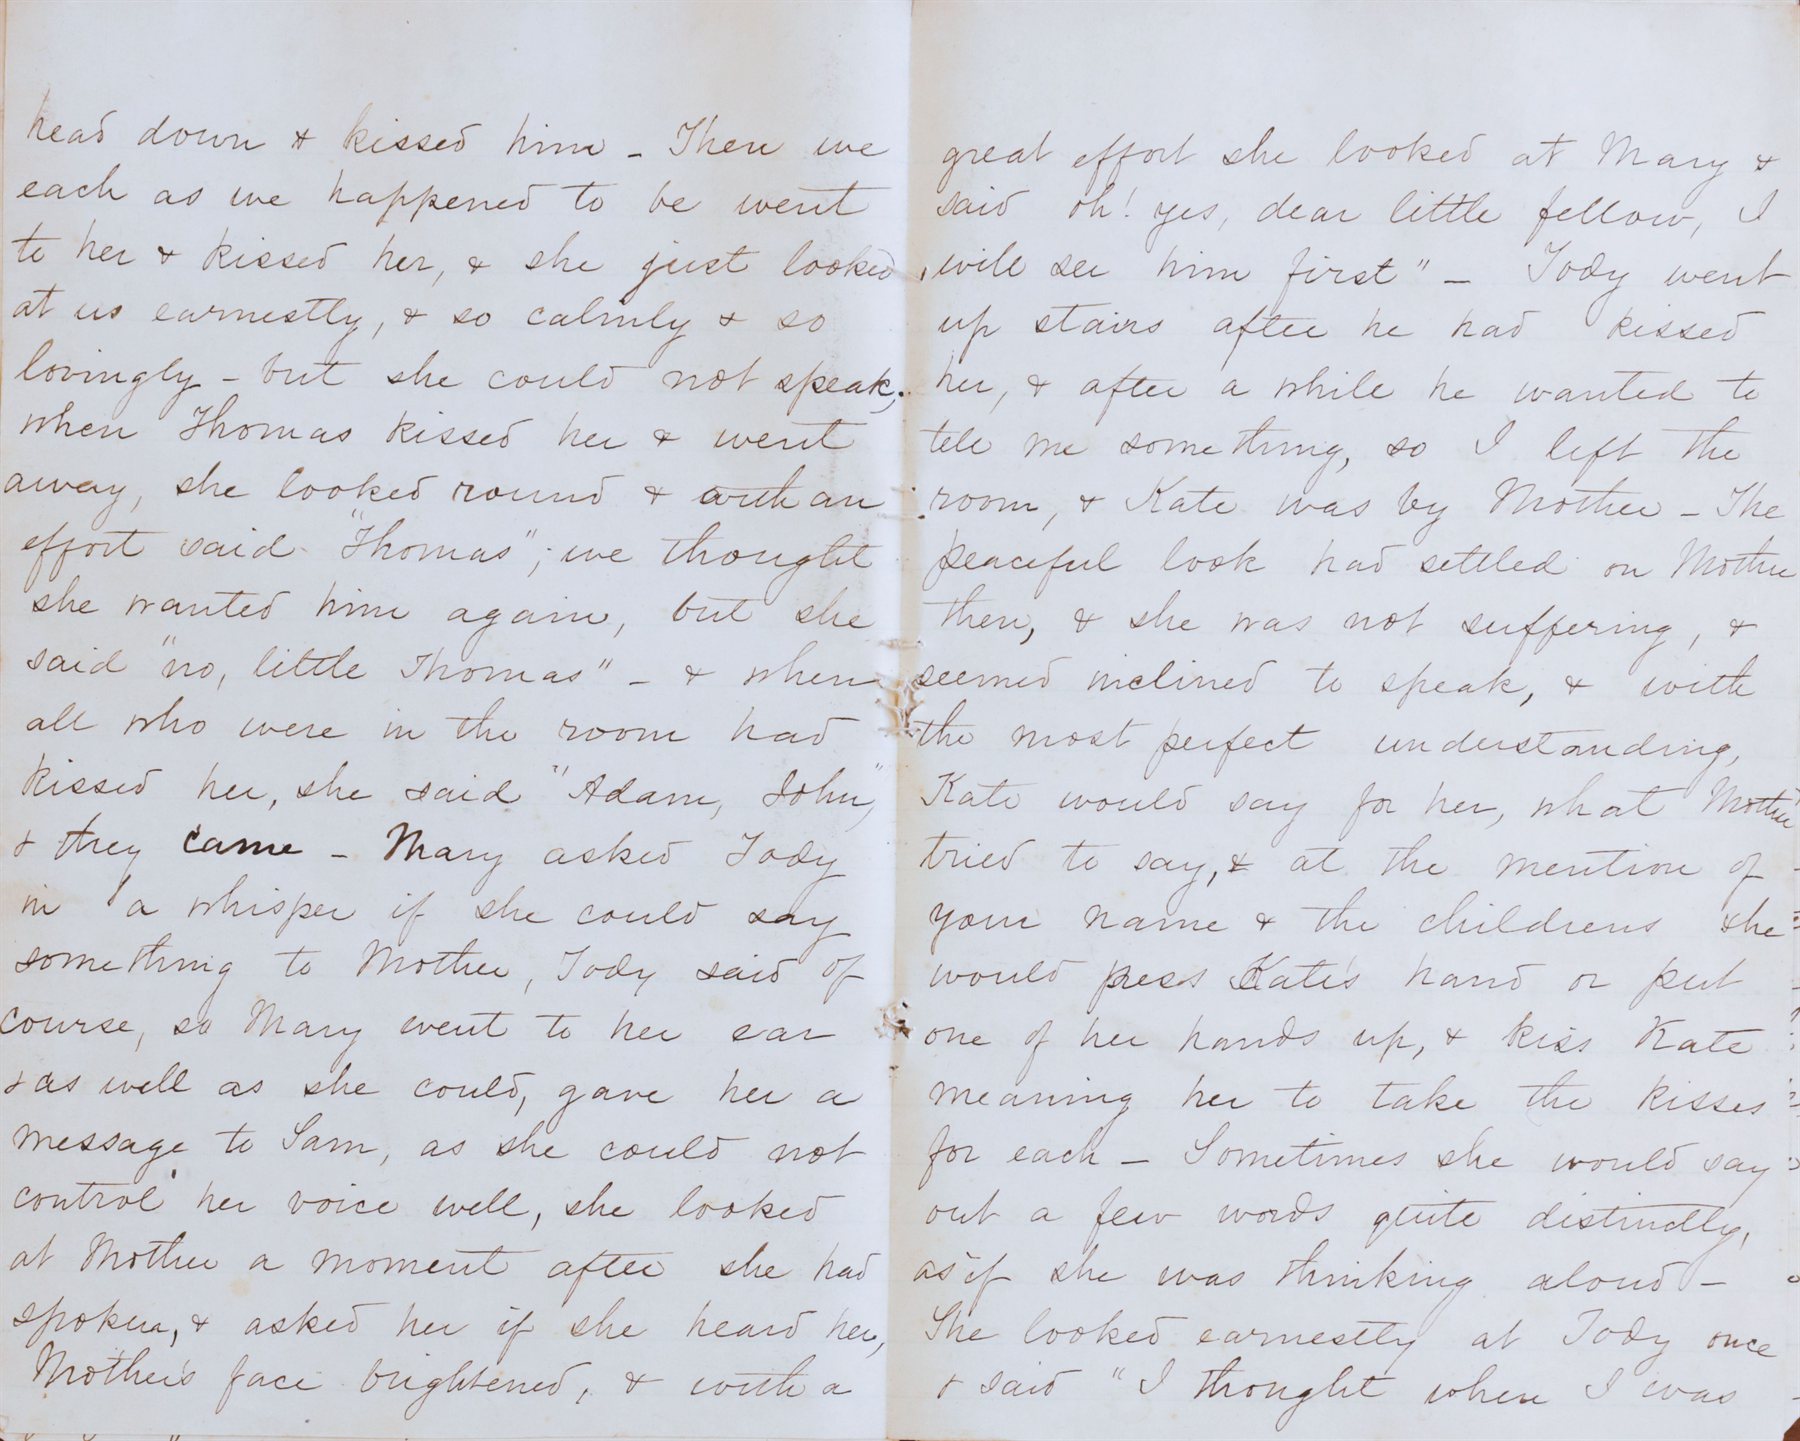 head down & kissed him - Then we
each as we happened to be went
to her & kissed her, & she just looked
at us earnestly, & so calmly & so
lovingly - but she could not speak,
when Thomas kissed her & went
away, she looked round & with an
effort said "Thomas"; we thought
she wanted him again, but she
said "no, little Thomas" - & when
all who were in the room had
kissed her, she said "Adam, John,"
& they came - Mary asked Tody
in a whisper if she could say
something to Mother, Tody said of
course, so Mary went to her ear
& as well as she could, gave her a
message to Sam, as she could not
control her voice well, she looked
at Mother a moment after she had
spoken, & asked her if she heard her,
Mother's face brightened, & with a
great effort she looked at Mary &
said oh! yes, dear little fellow, I
will see him first" - Tody went
up stairs after he had kissed
her, & after a while he wanted to
tell me something, so I left the
room, & Kate was by Mother - The
peaceful look had settled on Mother
then, & she was not suffering, &
seemed inclined to speak, & with
the most perfect understanding,
Kate would say for her, what Mother
tried to say, & at the mention of
your name & the childrens she
would press Kate's hand or put
one of her hands up, & kiss Kate
meaning her to take the kisses
for each - Sometimes she would say
out a few words quite distinctly,
as if she was thinking aloud -
She looked earnestly at Tody once
& said "I thought when I was